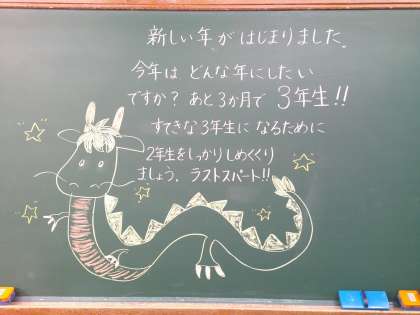 新しい年がはじまりました。
今年はどんな年にしたい
ですか？あと3か月で3年生!!
すてきな3年生になるために
2年生をしっかりしめくくり
ましょう。ラストスパート!!